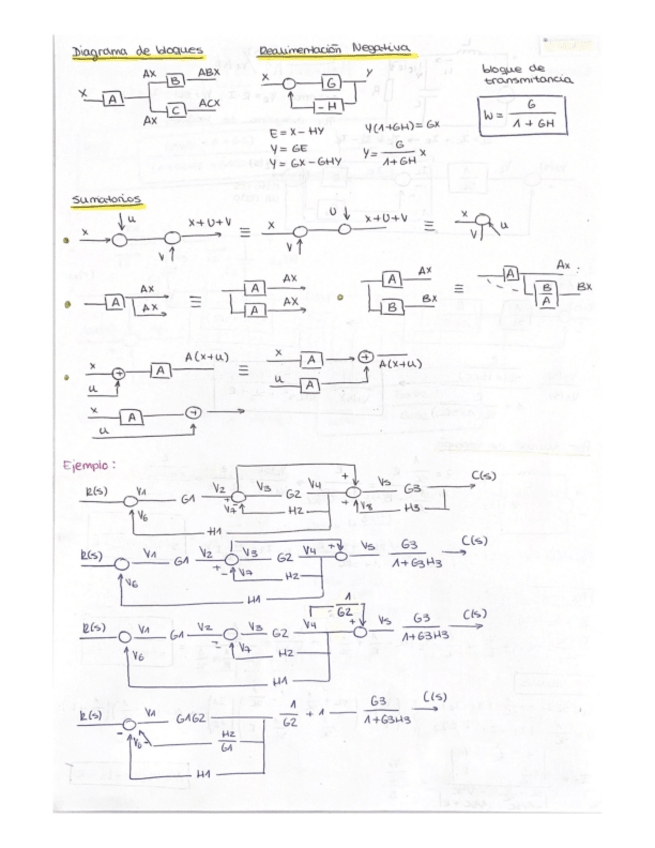 Diagrama de bloques
Realimentación Negativa
X A AX B ABX
AX C ACX
X G Y
-H
bloque de transmitancia
W = G / 1 + GH
E = X - HY
Y = GE
Y = GX - GHY
Y(1+GH) = GX
Y = G / 1+GH X
Sumatorios
X U V X+U+V ≡ X V U X+U+V ≡ X V U
A AX AX ≡ A AX A AX
A AX B BX ≡ A AX B/A BX
X + A A(X+U) U ≡ X A + A(X+U) U A
X A + U
Ejemplo:
R(s) V1 G1 V2 V3 G2 V4 + V5 G3 C(s)
V6 + V7 H2 + V8 H3
H1
R(s) V1 G1 V2 V3 G2 V4 + V5 G3 / 1+G3H3 C(s)
V6 + - V7 H2
H1
1 / G2
R(s) V1 G1 V2 V3 G2 V4 + V5 G3 / 1+G3H3 C(s)
V6 - V7 H2
H1
R(s) V1 G1G2 1 / G2 + 1 G3 / 1+G3H3 C(s)
- V6 H2 / G1
H1